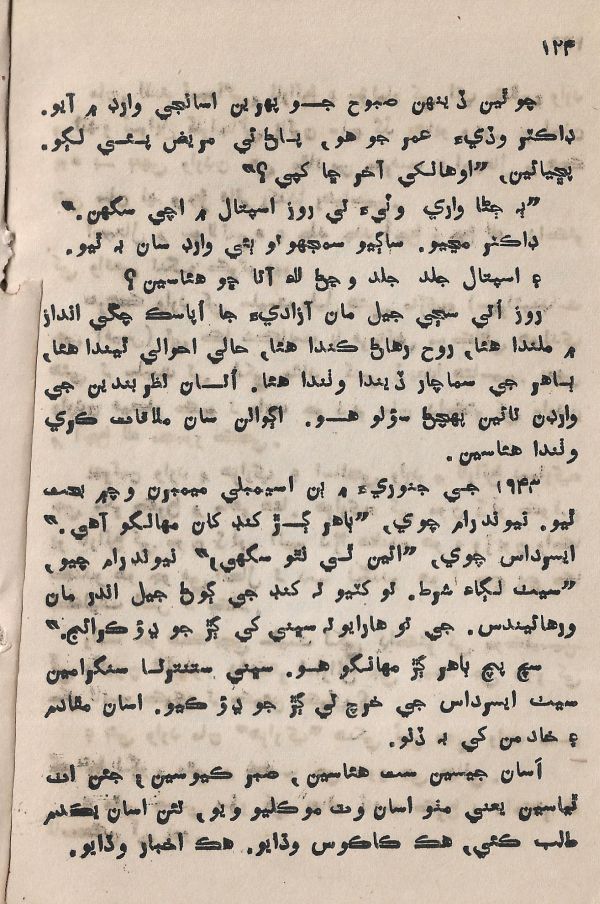 ۱۲۴
چوٿين ڏينهن صبوح جــو پهرين اسانجي وارڊ ۾ آيو.
ڊاڪٽر وڏيءَ عمر جو هو، پــاڻ ئي مريض پــڇي لڳو.
پڇيائين، ”اوهانکي آخر ڇا کپي؟“
”ٻه ڄڻا واري وٽيءَ تي روز اسپتال ۾ اچي سگهن.“
ڊاڪٽر مڃيو. ساڳيو سمجهوتو ٻئي وارڊ سان به ٿيو.
۽ اسپتال جلد جلد وڃڻ لاءِ آتا ڇو هئاسين؟
روز اُتي سڄي جيل مان آزاديءَ جا اُپاسڪ چڱي انداز
۾ ملندا هئا، روح رهاڻ ڪندا هئا، حالي احوالي ٿيندا هئا،
ٻــاهر جي سماچار ڏيندا وٺندا هئا. اُتــان نظربندين جي
وارڊن تائين پهچڻ سؤلو هــو. اڳواڻن سان ملاقات ڪري
وٺندا هئاسين.
۱۹۴۳ جــي جنوريءَ ۾ ٻن اسيمبلي ميمبرن وچ ۾ بحث
ٿيو. نيوندرام چوي، ”ٻاهر ڳــڙ کنڊ کان مهانگو آهي.“
ايسرداس چوي، ”ائين ٿــي نٿو سگهي،“ نيوندرام چيو،
”سيٺ لڳاءِ شرط. تو کٽيو ته کنڊ جي ڳوڻ جيل اندر مان
ورهائيندس. جي تو هارايو ته سڀني کي ڳڙ جو ڍڍڙ ڪرائج.“
سچ پچ ٻاهر ڳڙ مهانگو هــو. سڀني ستنترتا سنگرامين
سيٺ ايسرداس جي خرچ تي ڳڙ جو ڍڍڙ کيو. اسان مقادم
۽ خادمن کي به ڏنو.
اَسان جيسين ست هئاسين، صبر ڪيوسين، جئن اٺ
ٿياسين يعني مٺو اسان وٽ موڪليو ويو، تئن اسان يڪدم
طلب ڪئي، هڪ ڪاڪوس وڌايو. هڪ اخبار وڌايو.